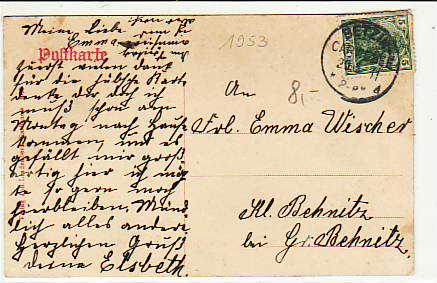 Meine liebe
Emma
Postkarte
zuerst vielen Dank
für die hübsche Karte
denke dir doch ich
muß schon den
Montag nach Hause
kommen, und es
gefällt mir groß
artig hier ich
te so gern noch
hierbleiben. Münd
lich alles andere
Herzlichen Gruß
deine Elsbeth.
1953
8,-
An
Frl. Emma Wischer
Kl. Behnitz
bei Gr. Behnitz
5
5